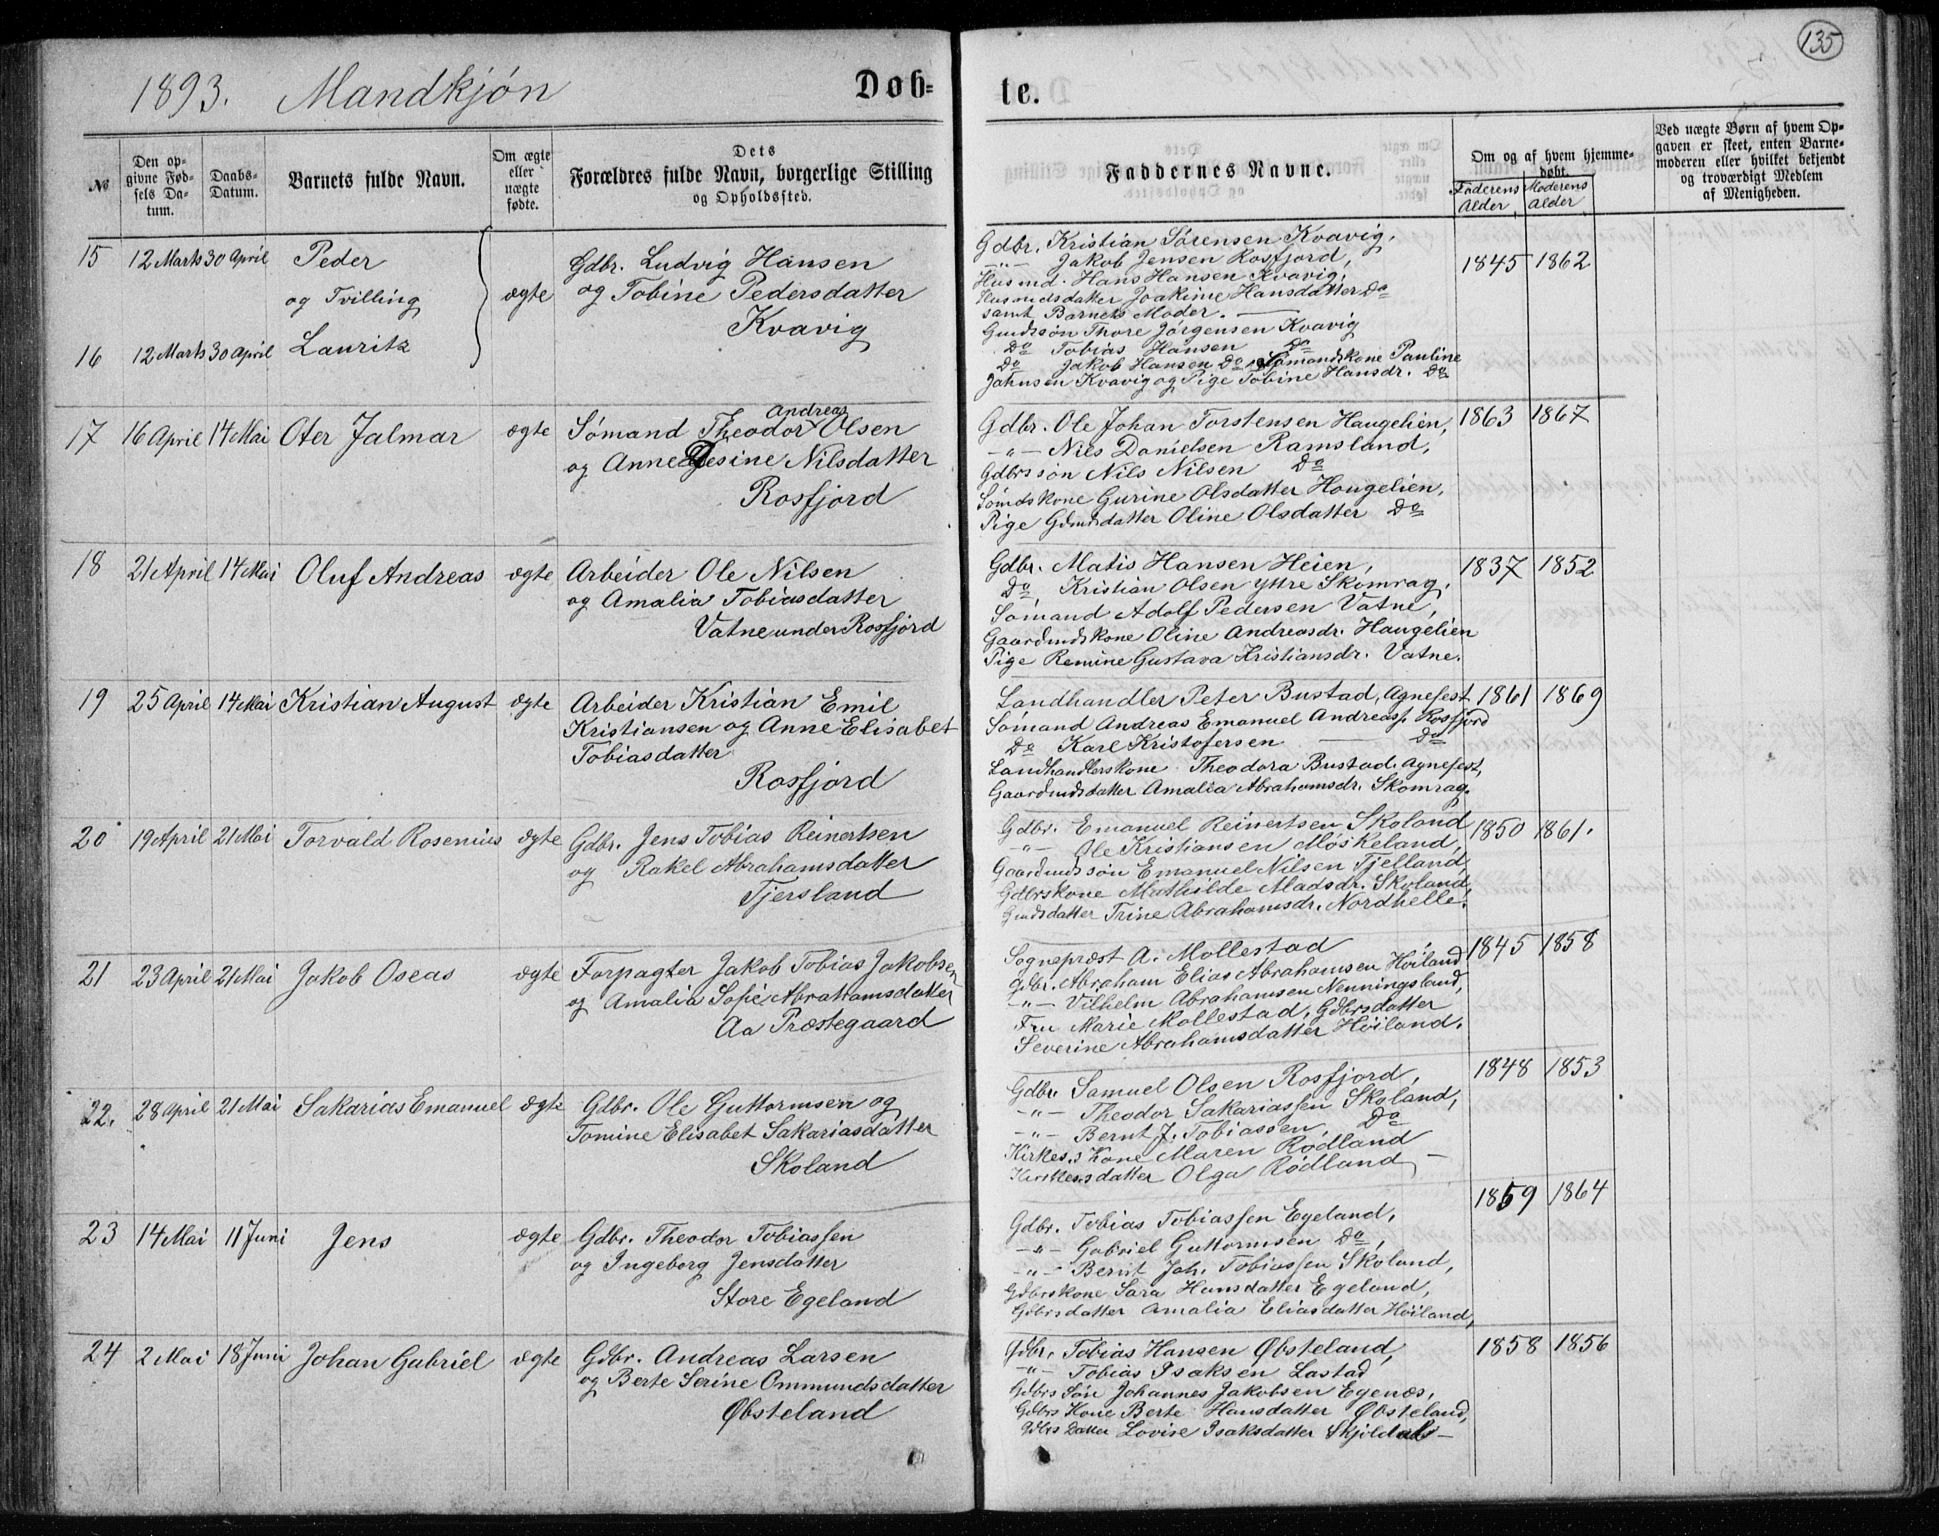 135
1893. Mandkjøn
Døb=
te.
No
Den op-
givne Fød-
sels Da-
tum.
Daabs-
Datum.
Barnets fulde Navn.
Om ægte
eller
uægte
fødte.
Dets
Forældres fulde Navn, borgerlige Stilling
og Opholdssted.
Faddernes Navne.
Om og af hvem hjemme-
døbt.
Faderens Alder,
Moderens Alder,
Ved uægte Børn af hvem Op-
gaven er skeet, enten Barne-
moderen eller hvilket bekjendt
og troværdigt Medlem
af Menigheden.
15 12 Marts 30 April Peder
og Tvilling
16 12 Marts 30 April Lauritz
ægte
Gdbr. Ludvig Hansen
og Tobine Pedersdatter
Kvavig
Gdbr. Kristian Sørensen Kvavig,
-"- Jakob Jensen Rosfjord,
Husmd. Hans Hansen Kvavig,
Husmdsdatter Joakime Hansdatter Do
samt Barnets Moder. —
Gmdssøn Thore Jørgensen Kvavig
Do Tobias Hansen Do
Do Jakob Hansen Do, Sømandskone Pauline
Jahnsen Kvavig og Pige Tobine Hansdr. Do
1845 1862
17 16 April 14 Mai Oter Jalmar ægte
Andreas
Sømand Theodor Olsen
og Anne Gesine Nilsdatter
Rosfjord
Gdbr. Ole Johan Torstensen Haugelien,
-"- Nils Danielsen Ramsland,
Gdbrssøn Nils Nilsen Do
Sømdskone Gurine Olsdatter Hougelien,
Pige Gdmdsdatter Oline Olsdatter Do
1863 1867
18 21 April 14 Mai Oluf Andreas ægte
Arbeider Ole Nilsen
og Amalia Tobiasdatter
Vatne under Rosfjord
Gdbr. Matis Hansen Heien,
Do, Kristian Olsen Yttre Skomrag,
Sømand Adolf Pedersen Vatne,
Gaardmdskone Oline Andreasdr. Haugelien
Pige Remine Gustava Kristiansdr. Vatne.
1837 1852
19 25 April 14 Mai Kristian August ægte
Arbeider Kristian Emil
Kristiansen og Anne Elisabet
Tobiasdatter
Rosfjord
Landhandler Peter Bustad, Agnefest
Sømand Andreas Emanuel Andreass. Rosfjord
Do Karl Kristofersen — Do
Landhandlerskone Theodora Bustad, Agnefest,
Gaardmdsdatter Amalia Abrahamsdr. Skomrag.
1861 1869
20 19 April 21 Mai Torvald Rosenius ægte
Gdbr. Jens Tobias Reinertsen
og Rakel Abrahamsdatter
Tjersland
Gdbr. Emanuel Reinertsen Skoland
-"- Ole Kristiansen Møskeland,
Gaardmdssøn Emanuel Nilsen Tjelland,
Gdbrskone Mathilde Madsdr. Skoland,
Gmdsdatter Trine Abrahamsdr. Nordhelle.
1850 1861.
21 23 April 21 Mai Jakob Oseas ægte
Forpagter Jakob Tobias Jakobsen
og Amalia Sofie Abrahamsdatter
Aa Præstegaard
Sognepræst A. Mollestad
Gdbr. Abraham Elias Abrahamsen Høiland
-"- Vilhelm Abrahamsen Nenningsland,
Fru Marie Mollestad, Gdbrsdatter
Severine Abrahamsdatter Høiland.
1845 1858
22. 28 April 21 Mai Sakarias Emanuel ægte
Gdbr. Ole Guttormsen og
Tomine Elisabet Sakariasdatter
Skoland
Gdbr. Samuel Olsen Rosfjord,
-"- Theodor Sakariassen Skoland,
-"- Bernt J. Tobiassen, Do
Kirkes.s Kone Maren Rødland
Kirkes.sdatter Olga Rødland —
1848 1853
23 14 Mai 11 Juni Jens ægte
Gdbr. Theodor Tobiassen
og Ingeborg Jensdatter
Store Egeland
Gdbr. Tobias Tobiassen Egeland,
-"- Gabriel Guttormsen Do,
-"- Bernt Joh. Tobiassen Skoland,
Gdbrskone Sara Hansdatter Egeland,
Gdbrsdatter Amalia Eliasdatter Høiland,
1859 1864
24 2 Mai 18 Juni Johan Gabriel ægte
Gdbr. Andreas Larsen
og Berte Serine Ommundsdatter
Øbsteland
Gdbr. Tobias Hansen Øbsteland,
-"- Tobias Isaksen Lastad
Gdbrs Søn Johannes Jakobsen Egenæs,
Gdbrs Kone Berte Hansdatter Øbsteland,
Gdbrs Datter Lovise Isaksdatter
1858 1856